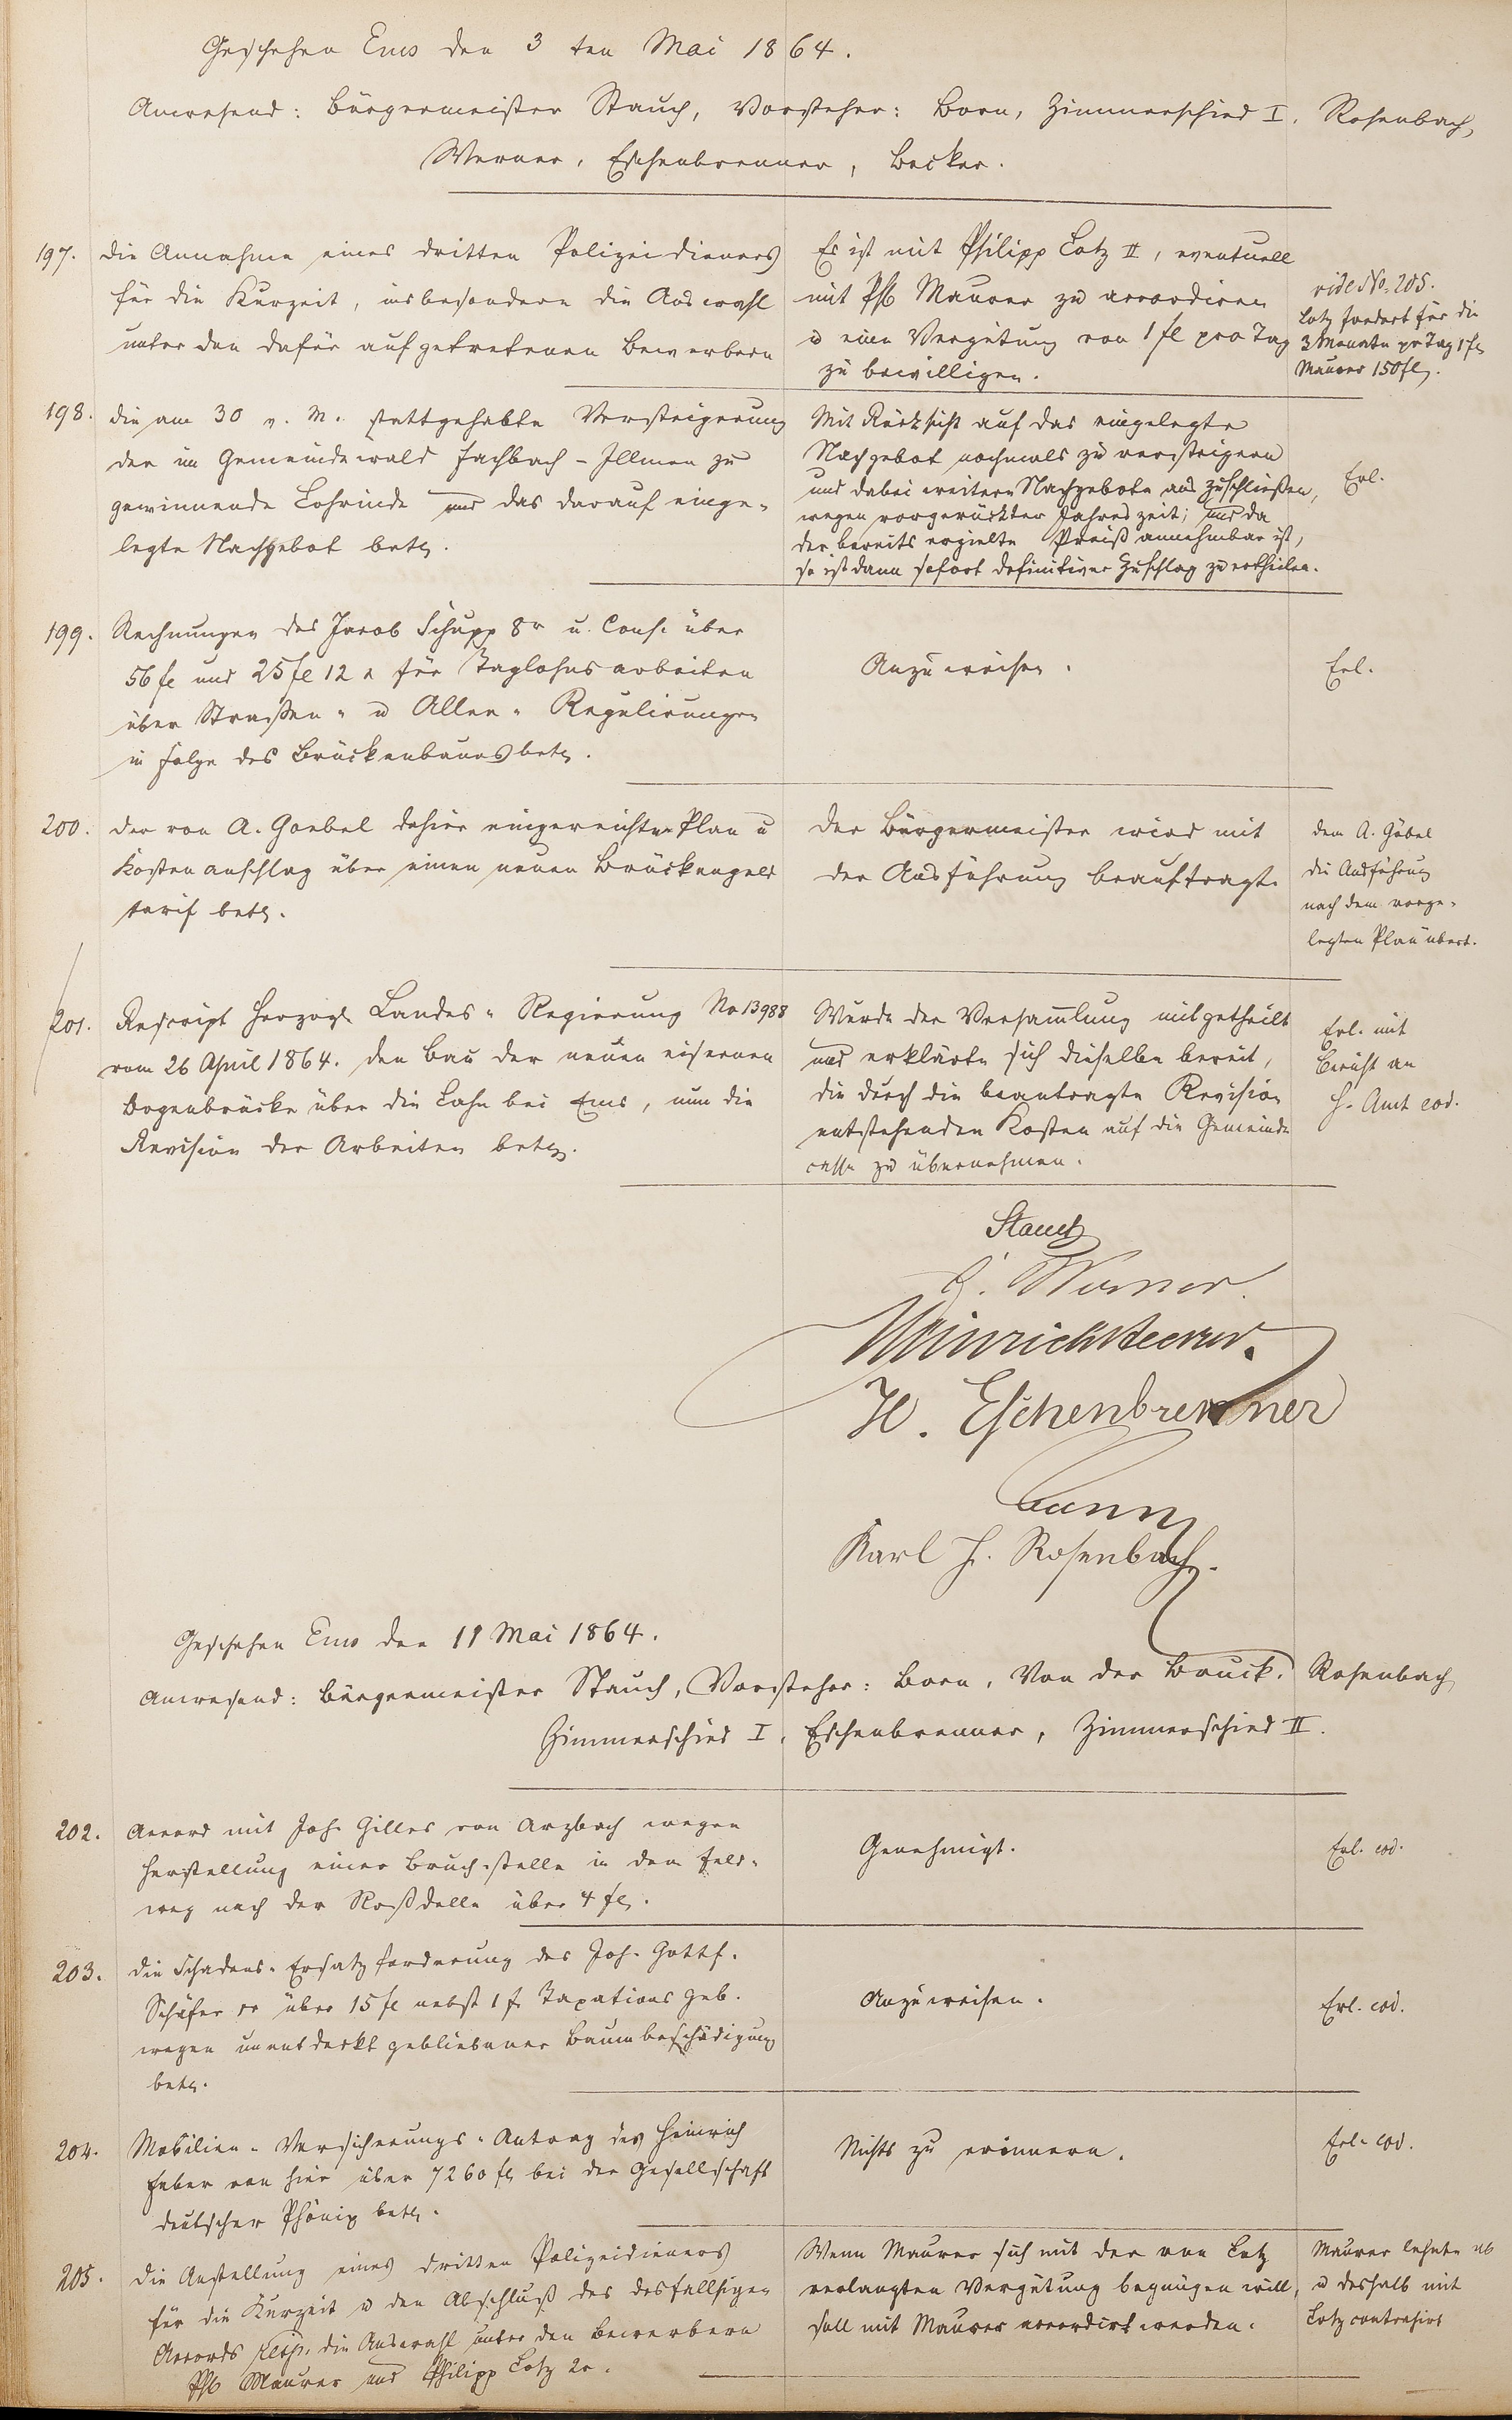 Geschehen Ems den 3 ten Mai 1864.
Anwesend: Bürgermeister Stauch, Vorsteher: Born, Zimmerschied I. Rosenbach,
Werner, Eschenbrenner, Becker.
197. die Annahme eines dritten Polizeidieners
für die Kurzeit, insbesondere die Auswahl
unter den dafür aufgetretenen Bewerbern
Es ist mit Philipp Lotz II, eventuell
mit Phil Maurer zu accordiren
u eine Vergütung von 1 fl pro Tag
zu bewilligen.
vide No. 205.
Lotz fordert für die
3 Monate pr Tag 1 fl
Maurer 150 fl.
198. die am 30 v. M. stattgehabte Versteigerung
der im Gemeindewald Fachbach-Illmen zu
gewinnende Lohrinde und das darauf einge-
legte Nachgebot betr.
Mit Rücksicht auf das eingelegte
Nachgebot nochmals zu versteigern
und dabei weitere Nachgebote auszuschließen,
wegen vorgerückter Jahreszeit; und da
der bereits erzielte Preiß annehmbar ist,
so ist dann sofort definitiver Zuschlag zu ertheilen.
Erl.
199. Rechnungen des Jacob Schupp 8r u. Cons. über
56 fl und 25 fl 12 x für Taglohnsarbeiten
über Straßen- u Allee- Regulirungen
in Folge des Brückenbaues betr.
Anzuweisen.
Erl.
200. der von A. Goebel dahier eingereichte Plan u
Kostenanschlag über einen neuen Brückengeld
tarif betr.
Der Bürgermeister wird mit
der Ausführung beauftragt.
dem A. Göbel
die Ausführung
nach dem vorge-
legten Plan übert.
201. Rescript Herzogl. Landes-Regierung No 13988
vom 26 April 1864. den Bau der neuen eisernen
Bogenbrücke über die Lahn bei Ems, nun die
Revision der Arbeiten betr.
Wurde der Versammlung mitgetheilt
und erklärte sich dieselbe bereit,
die durch die beantragte Revision
entstehenden Kosten auf die Gemeinde
casse zu übernehmen.
Erl. mit
Bericht an
H. Amt eod.
Stauch
Werner.
Heinrich Becker.
H. Eschenbrenner
Born
Karl H. Rosenbach.
Geschehen Ems den 11 Mai 1864.
Anwesend: Bürgermeister Stauch, Vorsteher: Born, Von der Bruck. Rosenbach,
Zimmerschied I, Eschenbrenner, Zimmerschied II.
202. Accord mit Joh. Gilles von Arzbach wegen
Herstellung einer Bruchstelle in dem Feld-
weg nach der Roßdelle über 4 fl.
Genehmigt.
Erl. eod.
203. die Schadens-Ersatzforderung des Joh. Gottf.
Schäfer über 15 fl nebst 1 f Taxations geb.
wegen unentdeckt gebliebener Baumbeschädigung
betr.
Anzuweisen.
Erl. eod.
204. Mobilien-Versicherungs-Antrag des Heinrich
Faber von hier über 7260 fl bei der Gesellschaft
deutscher Phönix betr.
Nichts zu erinnern.
Erl. eod.
205. die Anstellung eines dritten Polizeidieners
für die Kurzeit u den Abschluß des desfallsigen
Accords resp. die Auswahl unter den Bewerbern
Phil Maurer und Philipp Lotz 2r.
Wenn Maurer sich mit der von Lotz
verlangten Vergütung begnügen will,
soll mit Maurer accordirt werden.
Maurer lehnte ab
u deshalb mit
Lotz contrahirt